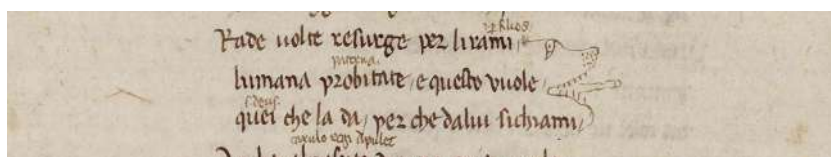 p filios
Rade uolte resurge per lirami,
paterna
lumana probitate, e questo vuole
s. deus
quei che la da, per che dalui sichiami,